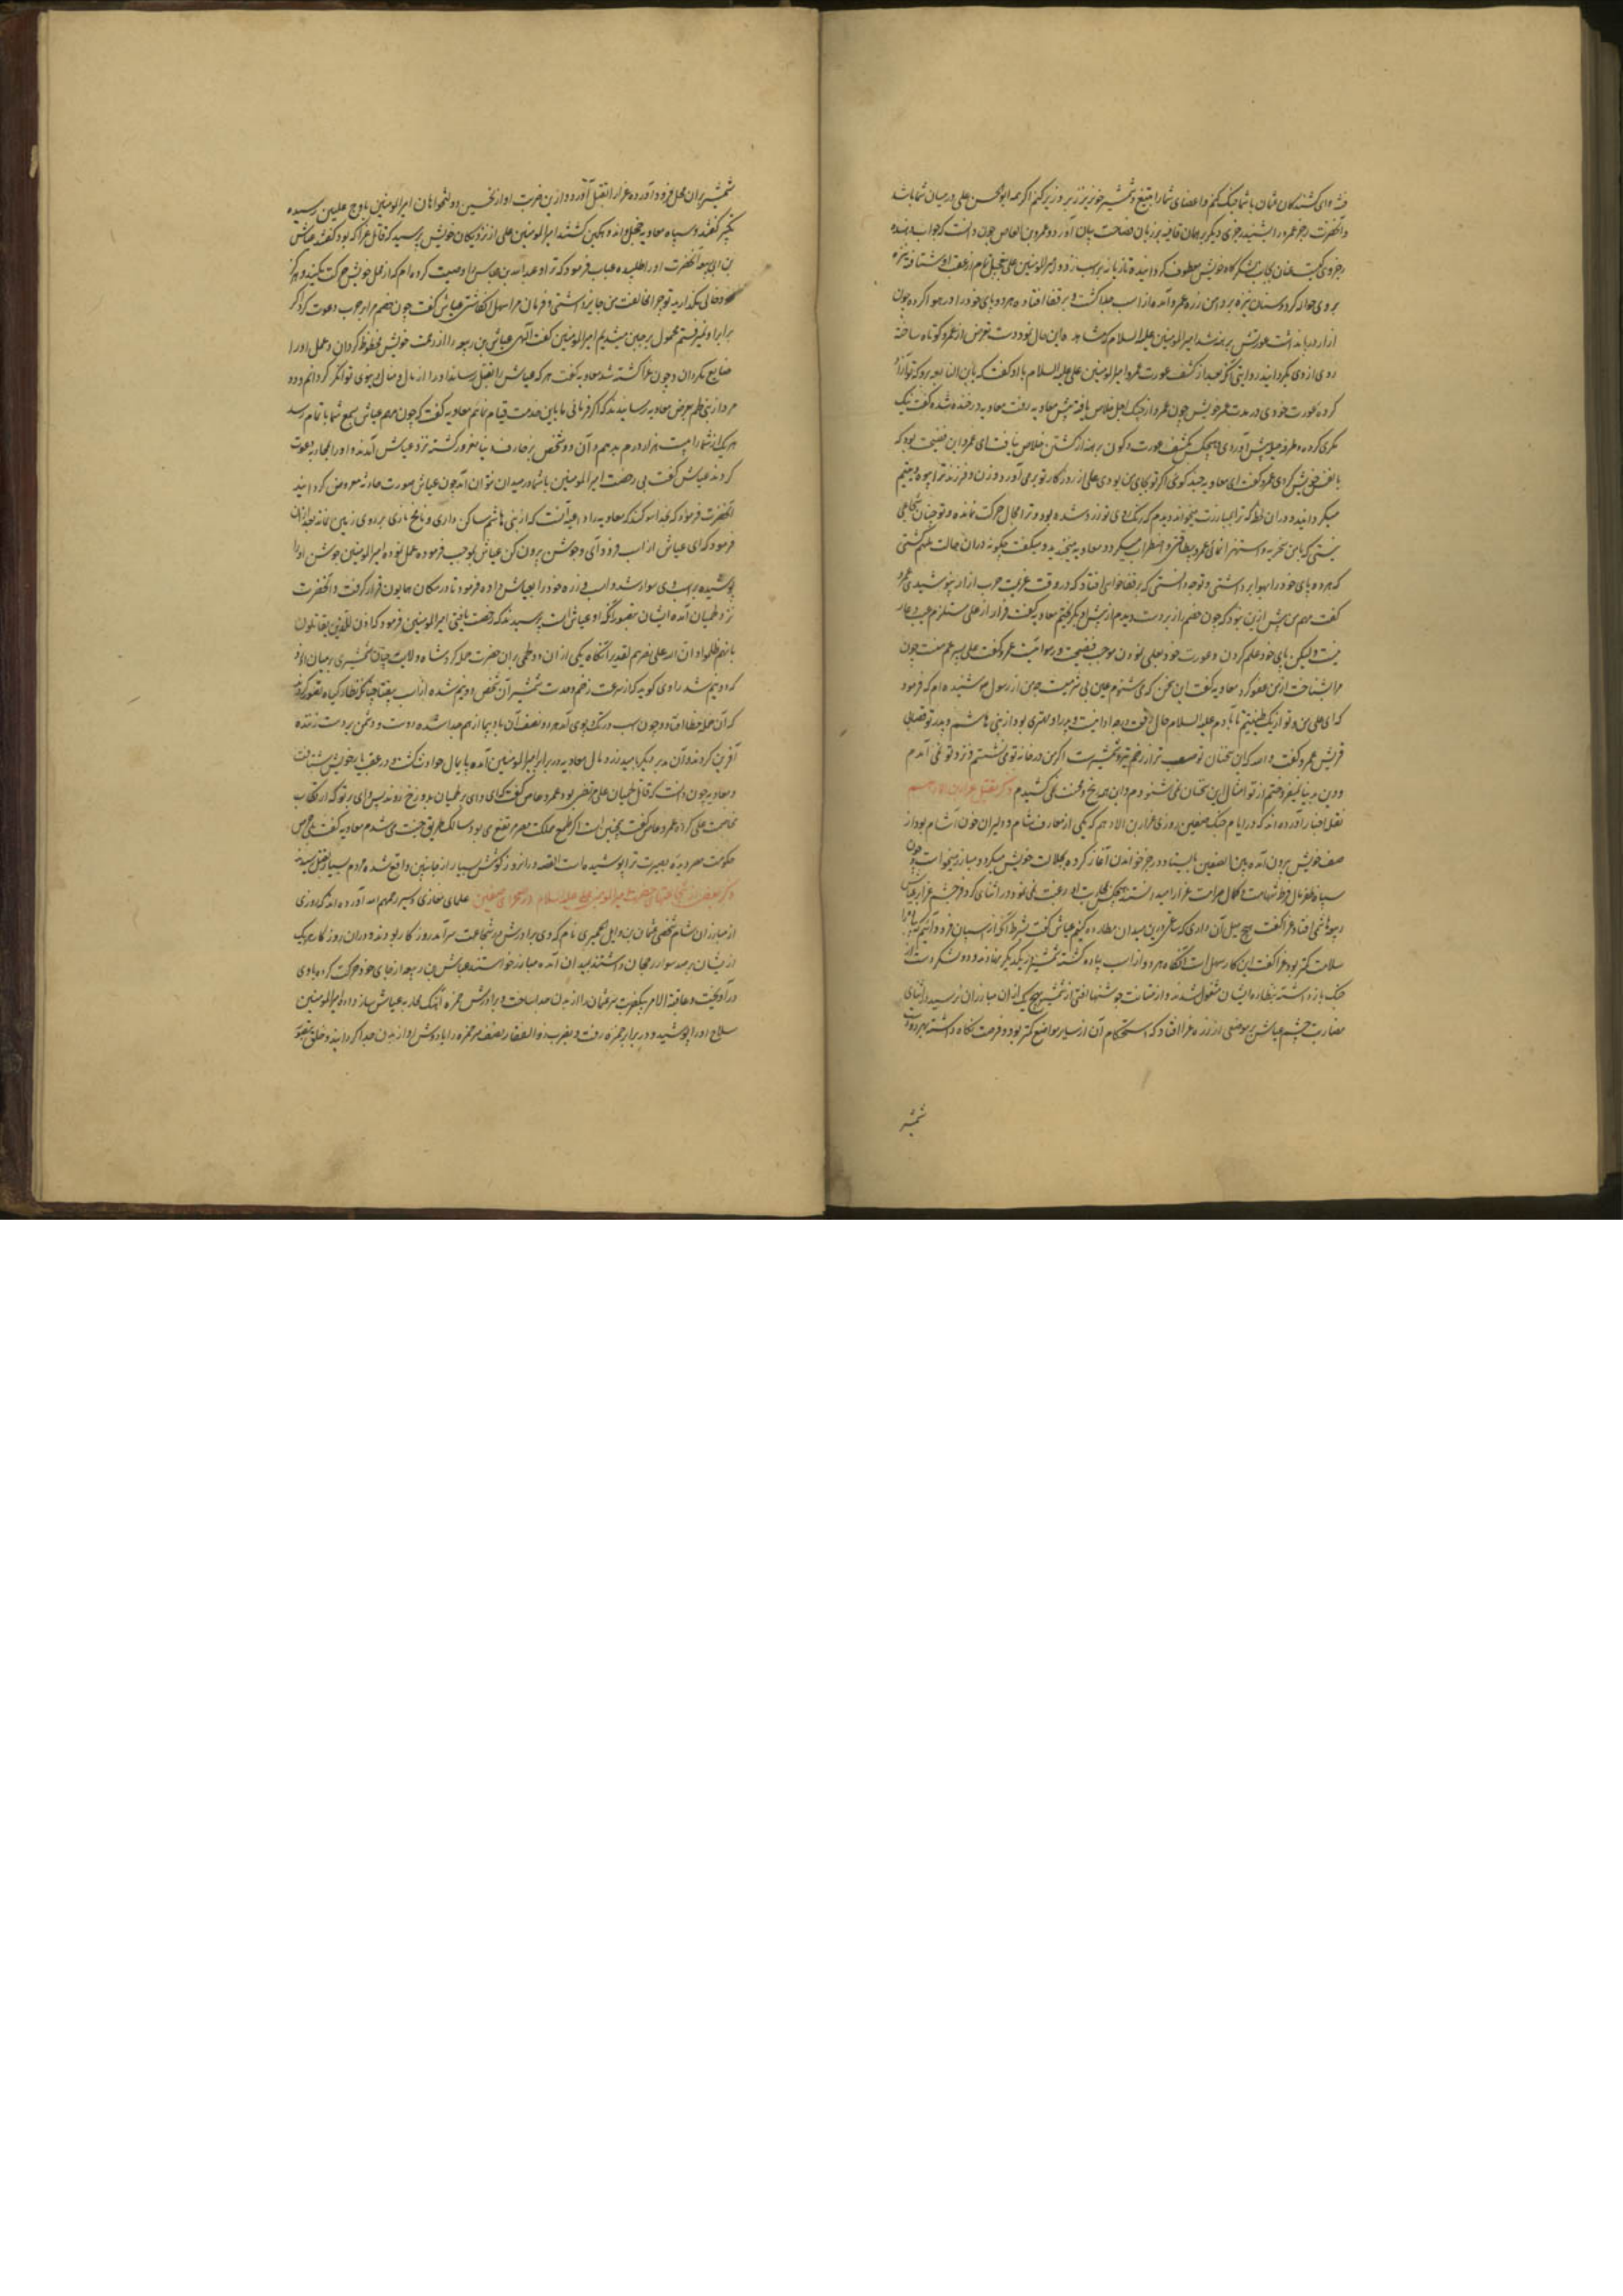 فئه ای کشندکان عثمان با شما جنک کنم و اعضای شما را بتیغ و شمشیر خونریز زیر و زبر کنم اکرچه ابوالحسن علی در میان شما باشد
و آنحضرت رجز عمرو را بشنید رجزی دیکر بر همان قافیه بر زبان فصاحت بیان آورد و عمرو بن العاص چون دانست که جواب دهنده
رجز وی کیست عنان بجانب لشکرگاه خویش معطوف کردانیده تازیانه بر اسب زد و امیرالمومنین علی از عقب او شتافته نیزه
بروی حواله کرد و سنان نیزه بر دامن زره عمرو آمده از اسب جدا کشت و بر قفا افتاده هر دو پای خود را در هوا کرد و چون
ازار در پا نداشت عورتش برهنه شد امیرالمومنین علیه السلام که مشاهده این حال نمود دست تعرض از عمرو کوتاه ساخته
روی از وی بکردانید و روایتی آنکه بعد از کشف عورت عمرو امیرالمومنین علی علیه السلام با او کفت که یا بن النابغه برو که تو آزاد
کرده عورت خودی در مدت عمر خویش چون عمرو از چنک اجل خلاص یافته پیش معاویه رفت معاویه در خنده شده کفت نیک
مکری کردی و طرفه حیله پیش آوردی و هیچکس بکشف عورت و کون برهنه از کشتن خلاص نیافت ای عمرو این فضیحت بود که
با نفس خویش کردی عمرو کفت ای معاویه چند کوئی اکر تو بجای من بودی علی از روزکار تو برمی آورد و زن و فرزند ترا بیوه و یتیم
میکردانید و دران لحظه که ترا بمبارزت میخواند دیدم که رنک روی تو زرد شده بود و ترا مجال حرکت نمانده و تو چنان شجاعی
نیستی که با من سخریه و استهزا نمائی عمرو بطاقتی و اضطراب میکرد و معاویه میخندید و میکفت چکونه دران حالت ملهم کشتی
که هر دو پای خود را بهوا برداشتی و توجه دانستی که بر قفا خواهی افتاد که در وقت عزیمت حرب ازار نپوشیدی عمرو
کفت مهم من پیش ازین نبود که چون خصم را زبردست دیدم از پیش او بکریختم معاویه کفت فرار از علی مستلزم عیب و عار
نیست ولیکن پای خود علم کردن و عورت خود بعلی نمودن موجب فضیحت و رسوائیست عمرو کفت علی پسر عم منست چون
مرا بشناخت از من عفو کرد معاویه کفت این سخن که می شنوم عین بی شرمیست چه من از رسول شنیده ام که فرمود
که ای علی من و تو از یک طینتیم تا بآدم علیه السلام حال و پدر او مهتری بود از بنی هاشم و پدر تو قصابی
قریش عمرو کفت والله که این سخنان تو صعب تر از زخم تیر و شمشیرست اکر من در خانه تو می نشستم و نزد تو نمی آمدم
و دین به دنیا نمیفروختم از تو امثال این سخنان نمی شنودم و این همه رنج و محنت نمی کشیدم ذکر بقتل
نقل اخبار آورده اند که در ایام جنک صفین روزی عزار بن الادهم که یکی از معارف شام و دلیران خون آشام بود از
صف خویش بیرون آمده بین الصفین بایستاد و رجز خواندن آغاز کرده بجلالت خویش میکرد و مبارز میخواست چون
سپاه ظفر مآل فرط شهامت و کمال صرامت عزار را میدانستند هیچکس بمحاربت او رغبت نمی نمود در اثنای کر و فر چشم عزار بر عباس
ربیعه هاشمی افتاد عزار کفت هیچ میل آن داری که ساعتی درین میدان مطارده کنیم عباس کفت بشرط آنکه از اسبان فرود آئیم که پیاده را
سلامت کمتر بود عزار کفت این کار سهل است آنکاه هر دو از اسب پیاده کشته شمشیر از یکدیکر و دو لشکر دست از
جنک باز داشته بنظاره ایشان مشغول شدند و از متانت جوشنها آفتی از شمشیر هیچ یک ازان مبارزان نرسید در اثنای
مضاربت چشم عباس بر موضعی از زره عزار افتاد که استحکام آن از سایر مواضع کمتر بود و فرصت نکاه داشته
شمشیر
شمشیر بران محل فرود آورده عزار را بقتل آورد و ازین ضرب آواز تحسین دولتخواهان امیرالمومنین باوج علیین رسیده
تکبیر کفتند و سپاه معاویه خجل و اندوهکین کشتند امیرالمومنین علی از نزدیکان خویش پرسید که قاتل عزار که بود کفتند عباس
بن ربیعه آنحضرت او را طلبیده عتاب فرمود که ترا و عبدالله بن عباس را وصیت کرده ام که از محل خویش حرکت نکنید و مرکز
خود خالی مکذارید تو چرا مخالفت من جایز داشتی و فرمان مرا سهل انکاشتی عباس کفت چون خصم مرا بحرب دعوت کرد اکر
برابر او نمیرفتم محمول بر جبن میشدیم امیرالمومنین کفت الهی عباس بن ربیعه را از رحمت خویش محظوظ کردان و عمل او را
ضایع مکردان و چون عزار کشته شد معاویه کفت هر که عباس را بقتل رساند او را از مال و منال دنیوی توانکر کردانم و دو
مرد از بنی لخم بعرض معاویه رسانیدند که اکر فرمانی ما باین خدمت قیام نمائیم معاویه کفت که چون مهم عباس بسعی شما باتمام رسد
هر یک از شما را بیست هزار درم بدهم و آن دو شخص بزخارف دنیا مغرور کشته نزد عباس آمدند و او را بمحاربه دعوت
کردند عباس کفت بی رخصت امیرالمومنین با شما در میدان نتوان آمد چون عباس صورت حادثه معروض کردانید
آنحضرت فرمود که بخدا سوکند که معاویه را داعیه آنست که از بنی هاشم ساکن داری و نافخ ناری بر روی زمین نماند بعد ازان
فرمود که ای عباس از اسب فرود آی و جوشن بیرون کن عباس بموجب فرموده عمل نموده امیرالمومنین جوشن او را
پوشیده بر اسب وی سوار شد و اسب و زره خود را بعباس داده فرمود تا در مکان همایون قرار کرفت و آنحضرت
نزد لخمیان آمده ایشان بتصور آنکه او عباس است پرسیدند که رخصت یافتی امیرالمومنین فرمود که اذن للذین یقاتلون
بانهم ظلموا و ان الله علی نصرهم لقدیر آنکاه یکی ازان دو لخمی بران حضرت حمله کرد شاه ولایت چنان شمشیری بر میان او زد
که دو نیم شد راوی کوید که از سرعت زخم و حدت شمشیر آن شخص دو نیم شده از اسب نیفتاد چنانکه نظارکیان تصور کردند
که آن حمله خطا افتاد و چون اسب در تک و پوی آمد هر دو نصف آن بادپیما از هم جدا شده دوست و دشمن بر دست زننده
آفرین کردند و آن مدبر دیکر بامید زر و مال معاویه در برابر امیرالمومنین آمده پایمال حوادث کشت و در عقب یار خویش شتافت
و معاویه چون دانست که قاتل لخمیان علی مرتضی بود عمرو عاص کفت که ای وای بر لخمیان بدوزخ روند پس وای بر تو که ارتکاب
مخاصمت علی کرده عمرو عاص کفت همچنین است اکر طمع مملکت مصر مرتفع می بود سالک طریق جنت می شدم معاویه کفت بلی حرص
حکومت مصر دیده بصیرت ترا پوشیده است القصه درانروز کوشش بسیار از جانبین واقع شده مردم بسیار بقتل رسیدند
ذکر بعضی از شجاعتهای حضرت امیرالمومنین علی علیه السلام در صحرای صفین علمای مغازی و سیر رحمهم الله آورده اند که روزی
از مبارزان شام شخصی عثمان بن وایل حمیری نام که وی و برادرش در شجاعت سرآمد روزکار بودند و دران روزکار هر یک
ازیشان بر صد سوار رجحان داشتند بمیدان آمده مبارز خواستند عباس بن ربیعه از جای خود حرکت کرده با وی
درآویخت و عاقبة الامر بیکضربت سر عثمان را از بدن جدا ساخت و برادرش حمزه آهنک محاربه عباس ساز داده امیرالمومنین
سلاح او را پوشیده و در برابر حمزه رفت و بضرب ذوالفقار نصف سر حمزه را با دوش او از بدن جدا کردانید و خلق تعجب